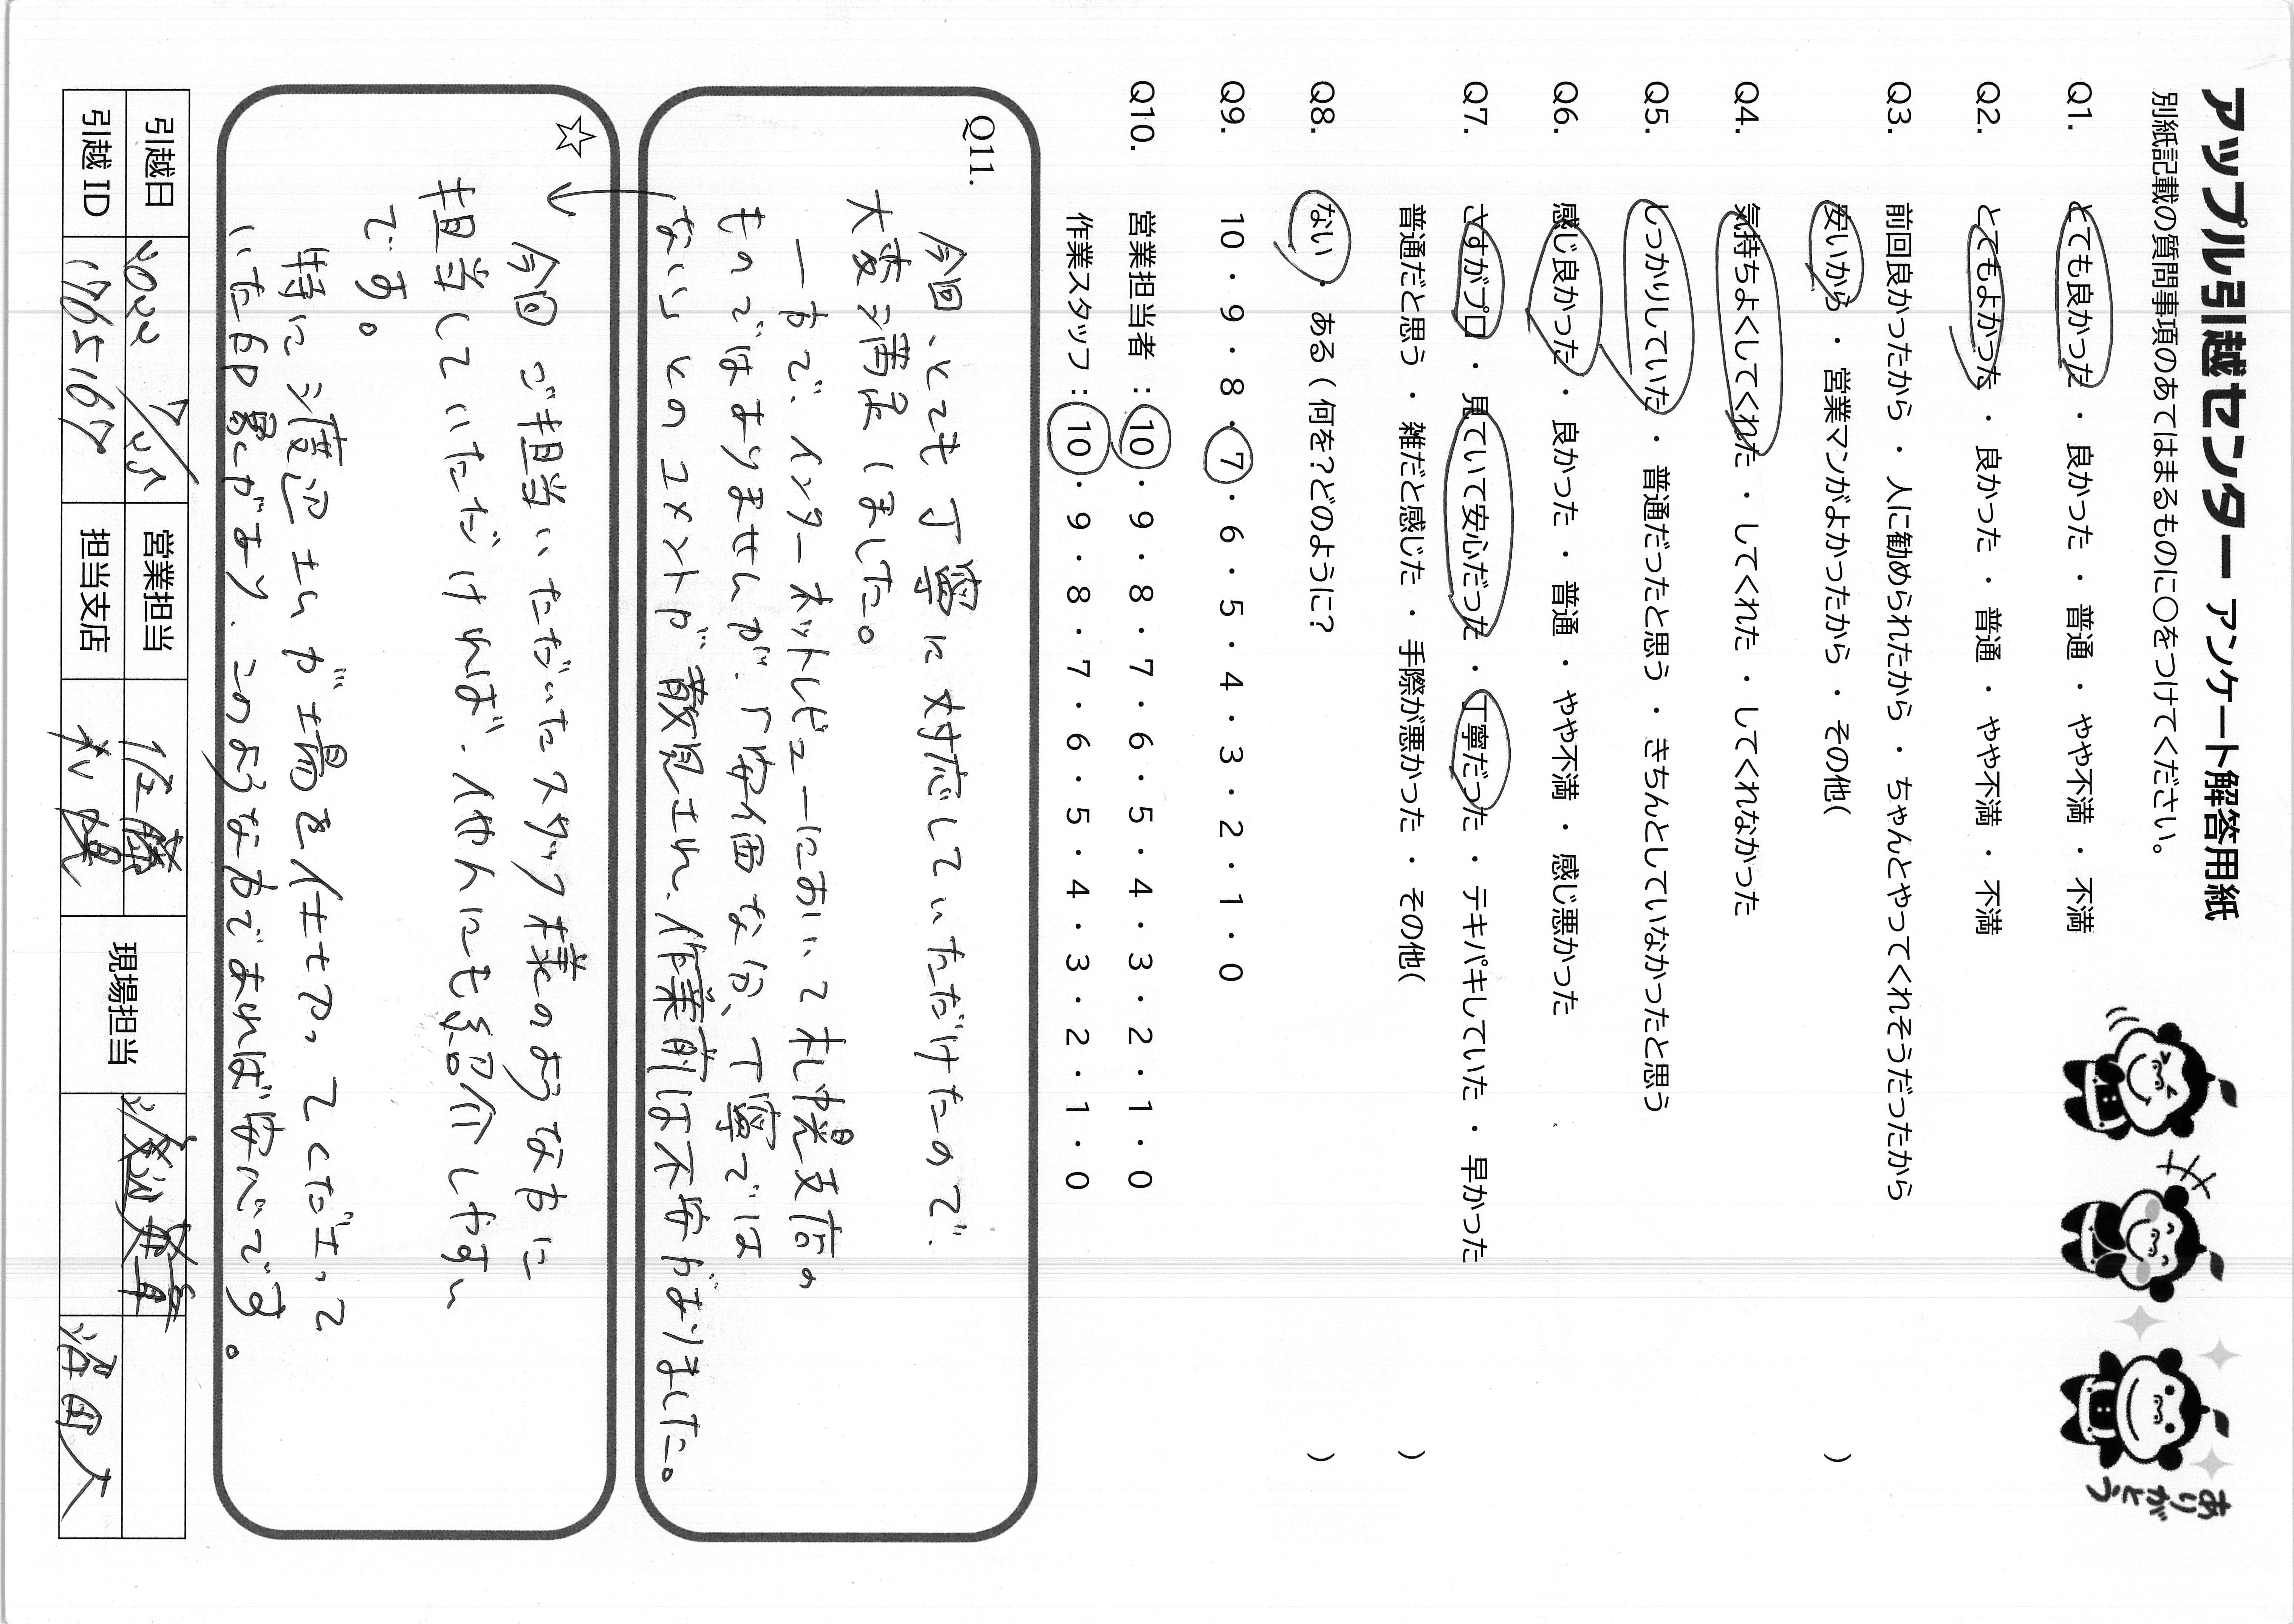 アップル引越センター アンケート解答用紙
別紙記載の質問事項のあてはまるものに○をつけてください。
Q1. とても良かった ・ 良かった ・ 普通 ・ やや不満 ・ 不満
Q2. とてもよかった ・ 良かった ・ 普通 ・ やや不満 ・ 不満
Q3. 前回良かったから ・ 人に勧められたから ・ ちゃんとやってくれそうだったから
安いから ・ 営業マンがよかったから ・ その他( )
Q4. 気持ちよくしてくれた ・ してくれた ・ してくれなかった
Q5. しっかりしていた ・ 普通だったと思う ・ きちんとしていなかったと思う
Q6. 感じ良かった ・ 良かった ・ 普通 ・ やや不満 ・ 感じ悪かった
Q7. さすがプロ ・ 見ていて安心だった ・ 丁寧だった ・ テキパキしていた ・ 早かった
普通だと思う ・ 雑だと感じた ・ 手際が悪かった ・ その他( )
Q8. ない ・ ある ( 何を?どのように? )
Q9. 10 ・ 9 ・ 8 ・ 7 ・ 6 ・ 5 ・ 4 ・ 3 ・ 2 ・ 1 ・ 0
Q10. 営業担当者 : 10 ・ 9 ・ 8 ・ 7 ・ 6 ・ 5 ・ 4 ・ 3 ・ 2 ・ 1 ・ 0
作業スタッフ : 10 ・ 9 ・ 8 ・ 7 ・ 6 ・ 5 ・ 4 ・ 3 ・ 2 ・ 1 ・ 0
ありがとう
Q11.
今回、とても丁寧に対応していただけたので、
大変満足しました。
一方で、インターネットレビューにおいて札幌支店の
ものではありませんが、「安価なな分、丁寧では
ない」とのコメントが散見され、作業前は不安がありました。
☆
今回ご担当いただいたスタッフ様のような方に
担当していただければ、他人にも紹介しやすい
です。
特に渡辺さんが場を仕切ってくださって
いた印象があり、このような方であれば安心です。
引越日 2022 7/25 営業担当 佐藤 現場担当
引越ID 1765167 担当支店 札幌 沼田 大